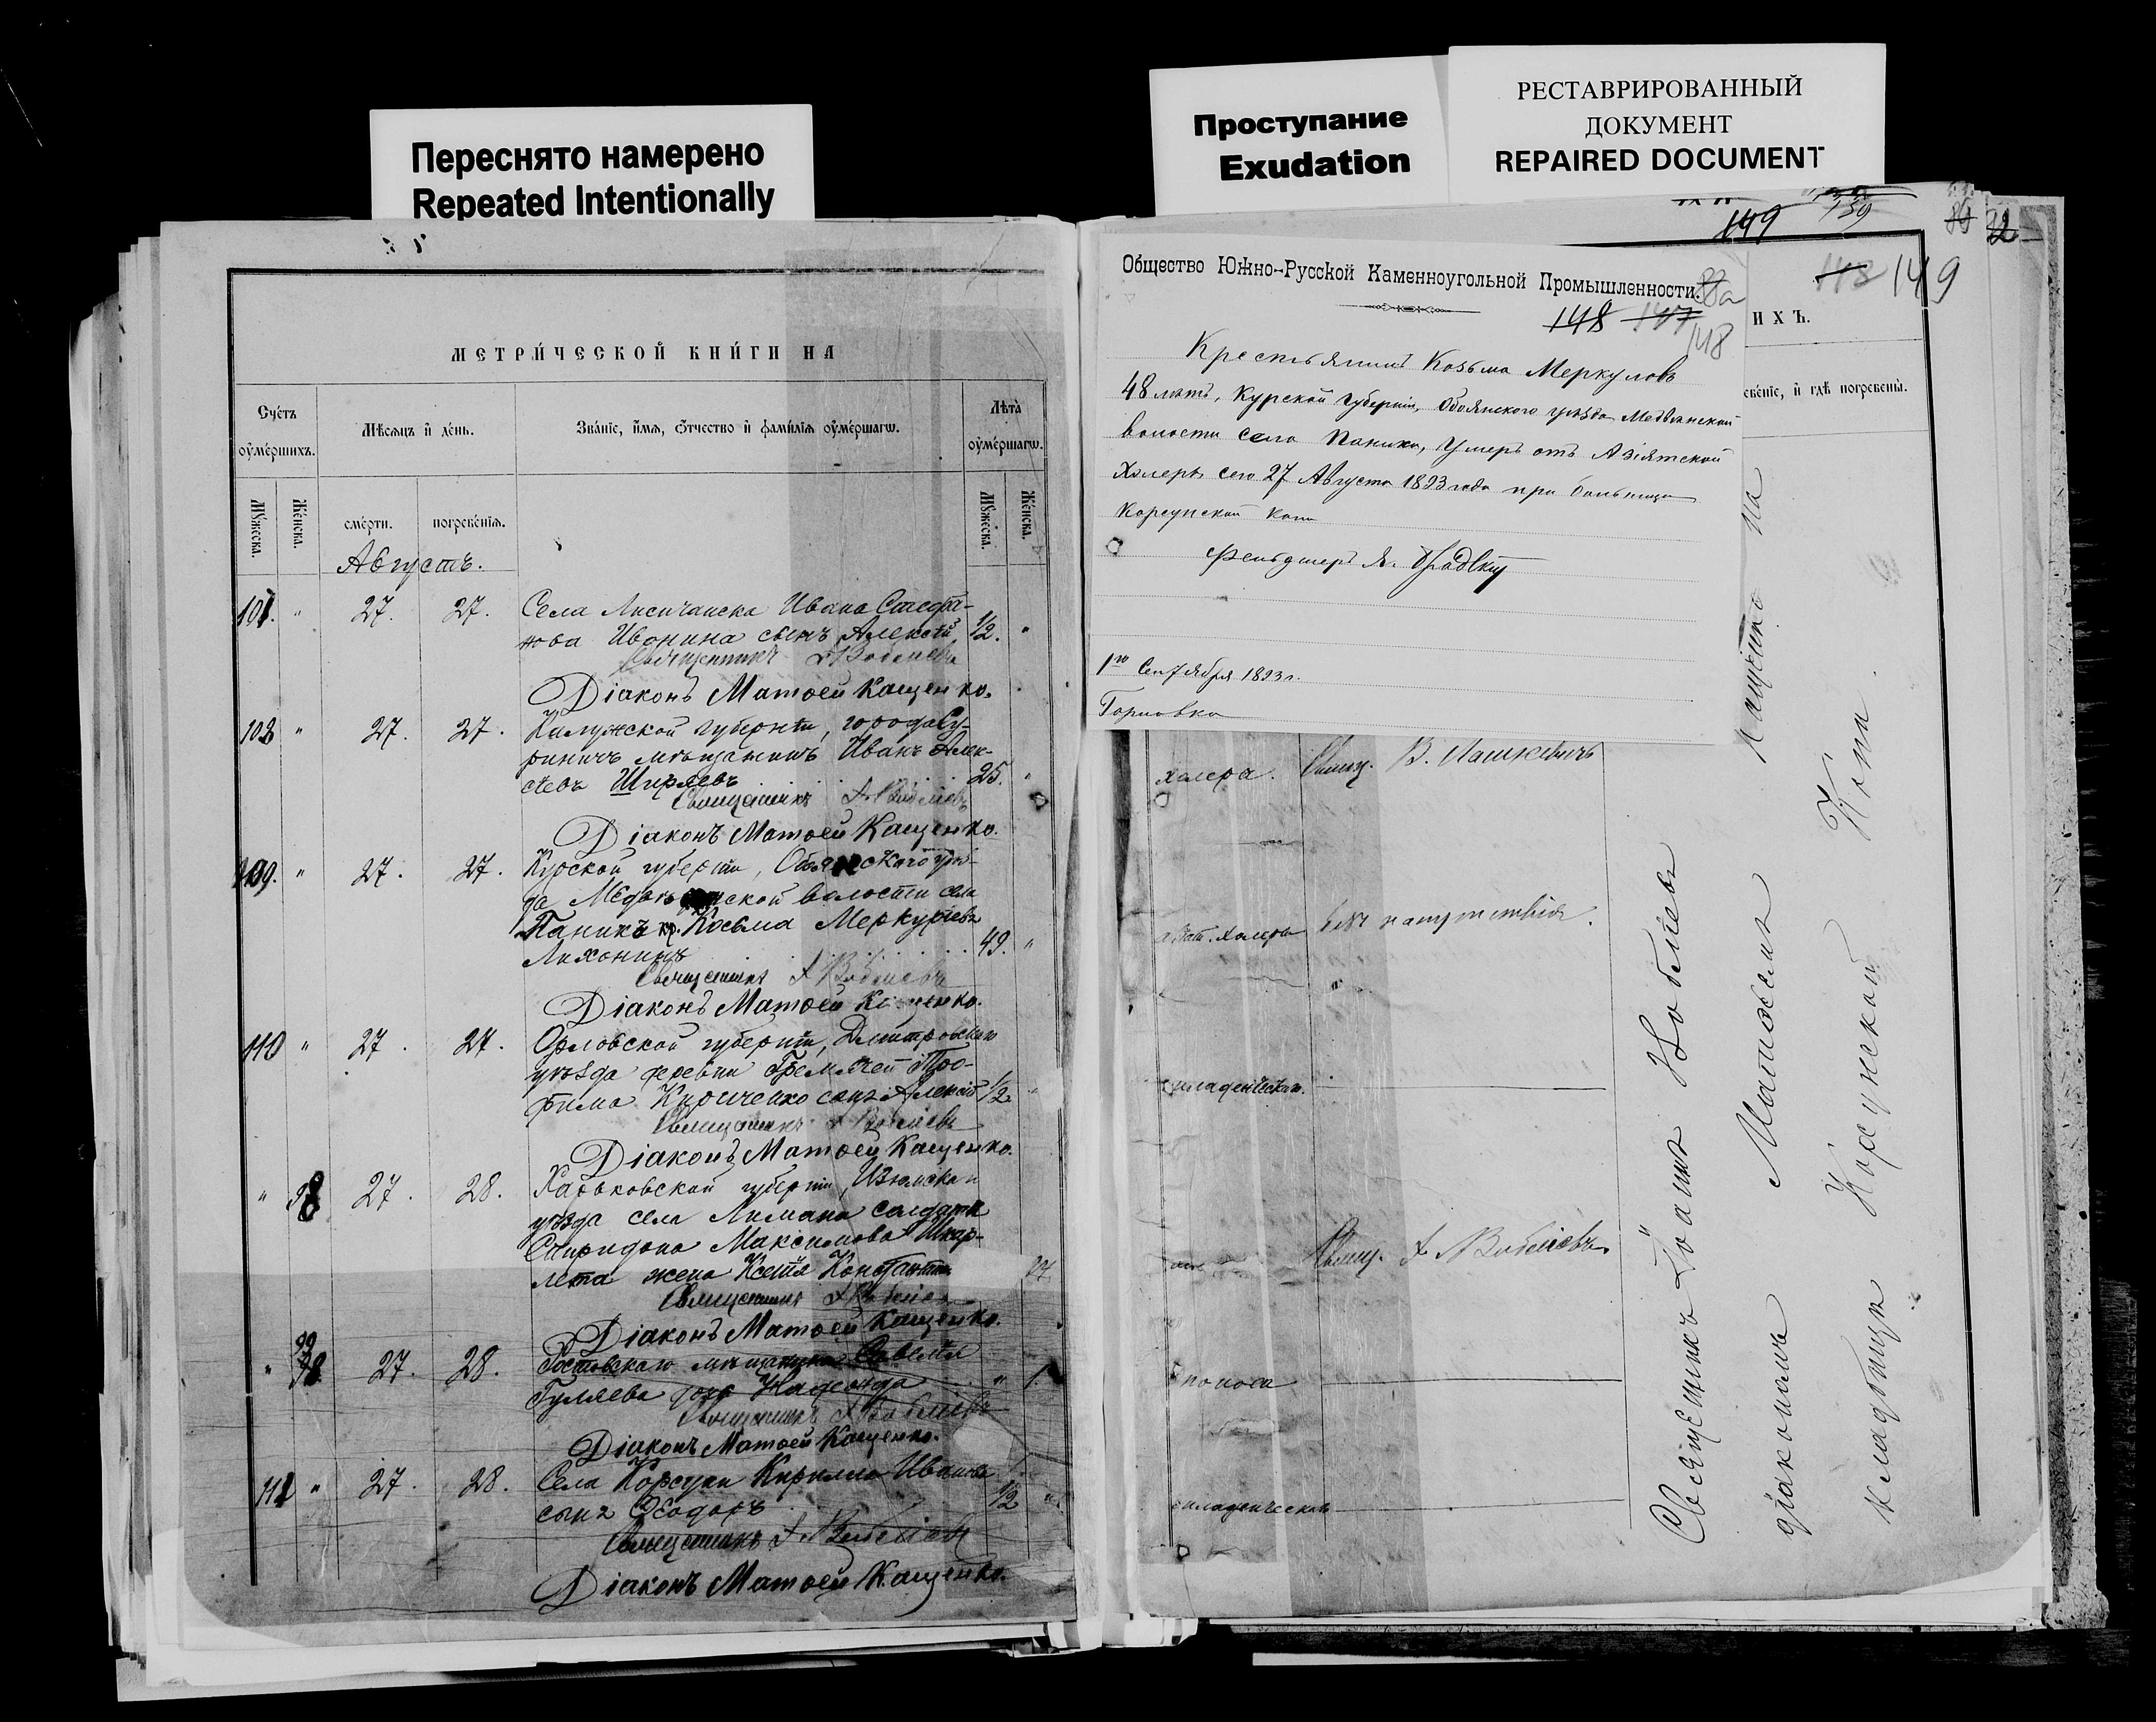 Переснято намерено
Repeated Intentionally
Проступание
Exudation
РЕСТАВРИРОВАННЫЙ
ДОКУМЕНТ
REPAIRED DOCUMENT
МЕТРИ́ЧЕСКОЙ КНИ́ГИ НА
Сче́тъ
оумершихъ.
Мѣсяцъ и де́нь.
Зва́нїе, и́мѧ, ѻ҆́тчество и҆ фамилїѧ оу҆ме́ршагѡ.
Лѣта̀
оу҆ме́ршагѡ.
Мꙋжеска.
Же́нска.
сме́рти.
погребе́нїѧ.
Мꙋжеска.
Же́нска.
Августъ.
27. 27. Села Лисичанска Ивана Стефа-
нова Иванина сынъ Алексѣй 1/2. "
Священникъ
Діаконъ Матѳей Кащенко.
108 " 27. 27. Калужской губерніи, города Су-
хиничъ мѣщанинъ Иванъ Алек-
сѣевъ Ширяевъ 25. "
Священникъ
Діаконъ Матѳей Кащенко.
109. " 27. 27. Курской губерніи, Обоянскаго уѣз-
да Медвенской волости села
Паникъ кр. Косьма Меркуріевъ
Лихонинъ 49. "
Священникъ
Діаконъ Матѳей Кащенко.
110 " 27. 27. Орловской губерніи, Дмитровскаго
уѣзда деревни Гремячей Тро-
фима Кириченко сынъ Алексѣй 1/2 "
Священникъ
Діаконъ Матѳей Кащенко.
" 98 27. 28. Харьковской губерніи, Изюмскаго
уѣзда села Лимана солдата
Спиридона Максимова Шкар-
лета жена Ксенія Константин.
Священникъ
Діаконъ Матѳей Кащенко.
" 99 27. 28. Ростовскаго мѣщанина Савелія
Гуляева дочь Надежда " 1
Священникъ
Діаконъ Матѳей Кащенко.
111 " 27. 28. Села Корсуни Кирилла Иванова
сынъ Ѳеодоръ 1/2 "
Священникъ
Діаконъ Матѳей Кащенко.
149 159
Общество Южно-Русской Каменноугольной Промышленности.
148 147
148
Крестьянинъ Козьма Меркуловъ
48 лѣтъ, Курской губерніи, Обоянскаго уѣзда Медвянской
волости села Паники, умеръ отъ Азіятской
Холеры сего 27 Августа 1893 года при больницѣ
Корсунской Копи
Фельдшеръ
1го Сентября 1893 г.
Горловка
148 149
ИХЪ.
ебе́нїе, и҆ гдѣ̀ погребены̀.
холера. Свящ. В. Пашкевичъ
азіат. холеры безъ напутствія.
младенческая.
Свящ.
поноса
младенческая
Священникъ Іоаннъ
діакономъ Матѳеемъ Кащенко на
кладбищѣ Корсунской Копи.